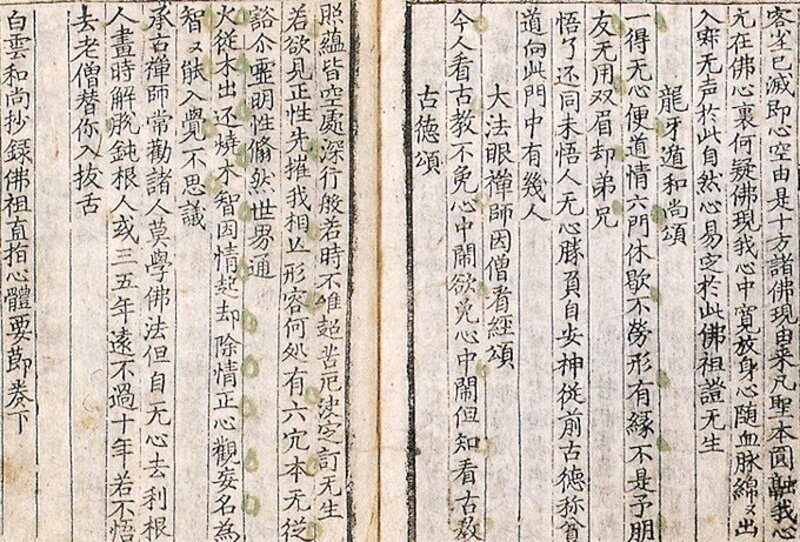 客尘已滅即心空由是十方諸佛現由来凡聖本圓融我心
元在佛心裏何疑佛現我心中寛放身心随血脉綿〻出
入寂无声於此自然心易定於此佛祖證无生
龍牙遁和尚頌
一得无心便道情六門休歇不勞形有緣不是予朋
友无用双眉却弟兄
悟了还同未悟人无心勝負自安神從前古德称貧
道向此門中有幾人
大法眼禪師因僧看經頌
今人看古教不免心中閙欲免心中閙但知看古教
古德頌
照蘊皆空處深行般若時不唯超苦厄决定訂无生
若欲見正性先摧我相丘形容何处有六宂本无從
豁尒霊明性翛然世界通
火從木出还燒木智因情起却除情正心觀妄名為
智〻能入覺不思議
承古禪師常勸諸人莫學佛法但自无心去利根
人晝時解脫鈍根人或三五年遠不過十年若不悟
去老僧替你入拔舌
白雲和尚抄録佛祖直指心體要節卷下